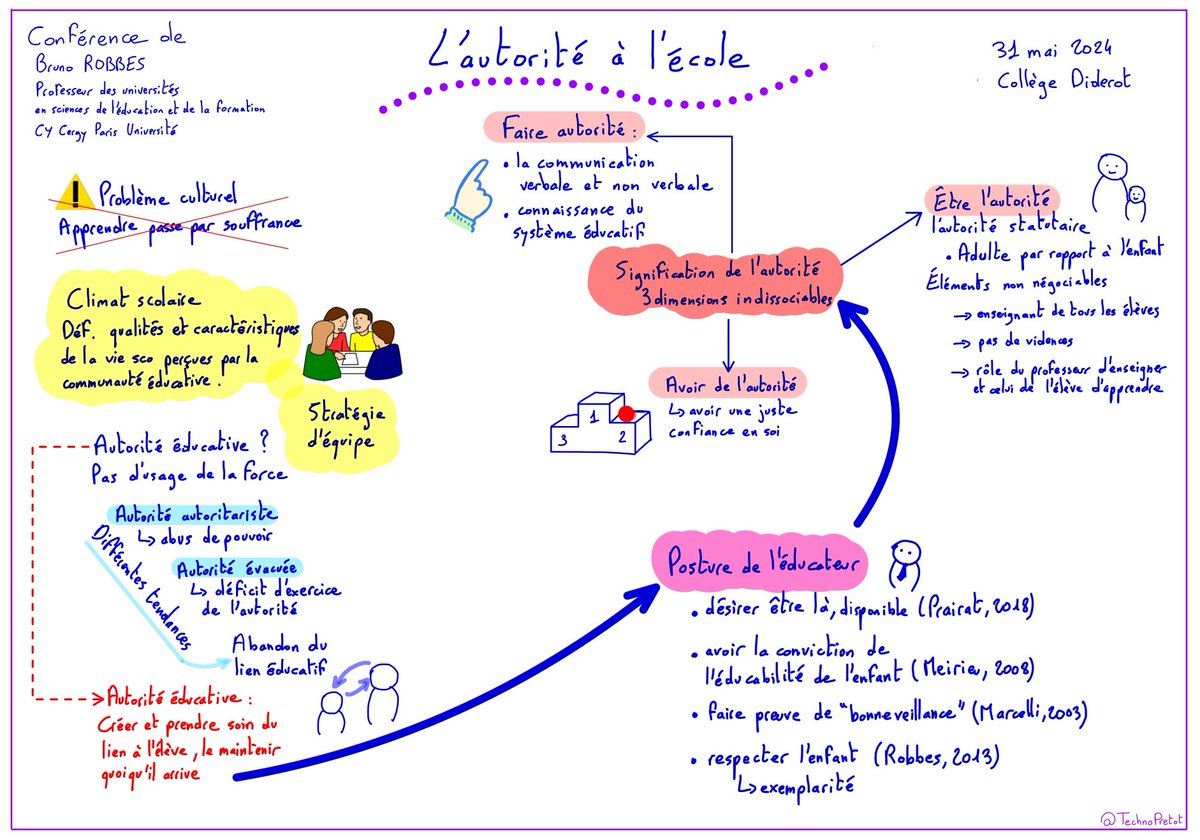 Conférence de
Bruno ROBBES
Professeur des universités
en sciences de l'éducation et de la formation
CY Cergy Paris Université
L'autorité à l'école
31 mai 2024
Collège Diderot
Problème culturel
Apprendre passe par souffrance
Climat scolaire
Déf. qualités et caractéristiques
de la vie sco perçues par la
communauté éducative.
Stratégie
d'équipe
Autorité éducative ?
Pas d'usage de la force
Autorité autoritariste
↳ abus de pouvoir
Différentes tendances
Autorité évacuée
↳ déficit d'exercice
de l'autorité
Abandon du
lien éducatif
Autorité éducative :
Créer et prendre soin du
lien à l'élève, le maintenir
quoiqu'il arrive
Posture de l'éducateur
• désirer être là, disponible (Prairat, 2018)
• avoir la conviction de
l'éducabilité de l'enfant (Meirieu, 2008)
• faire preuve de "bonneveillance" (Marcelli, 2003)
• respecter l'enfant (Robbes, 2013)
↳ exemplarité
Signification de l'autorité
3 dimensions indissociables
Faire autorité :
• la communication
verbale et non verbale
• connaissance du
système éducatif
Être l'autorité
l'autorité statutaire
• Adulte par rapport à l'enfant
Éléments non négociables
→ enseignant de tous les élèves
→ pas de violences
→ rôle du professeur d'enseigner
et celui de l'élève d'apprendre
Avoir de l'autorité
↳ avoir une juste
confiance en soi
1
3 2
@TechnoPretot